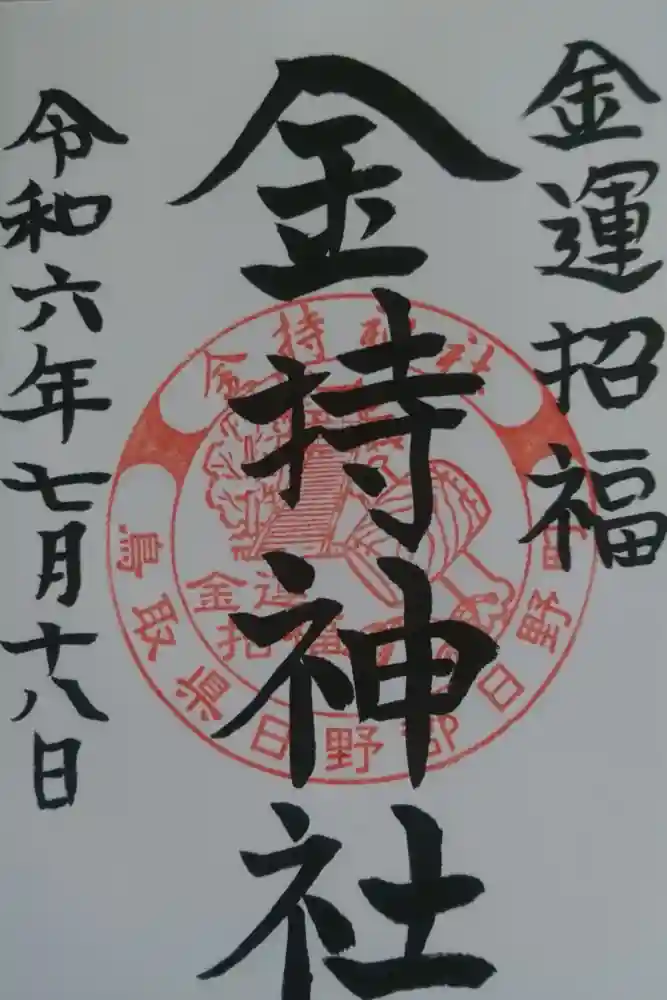 金運招福
金持神社
令和六年七月十八日
金持神社
金運
招福
鳥取県日野郡日野町